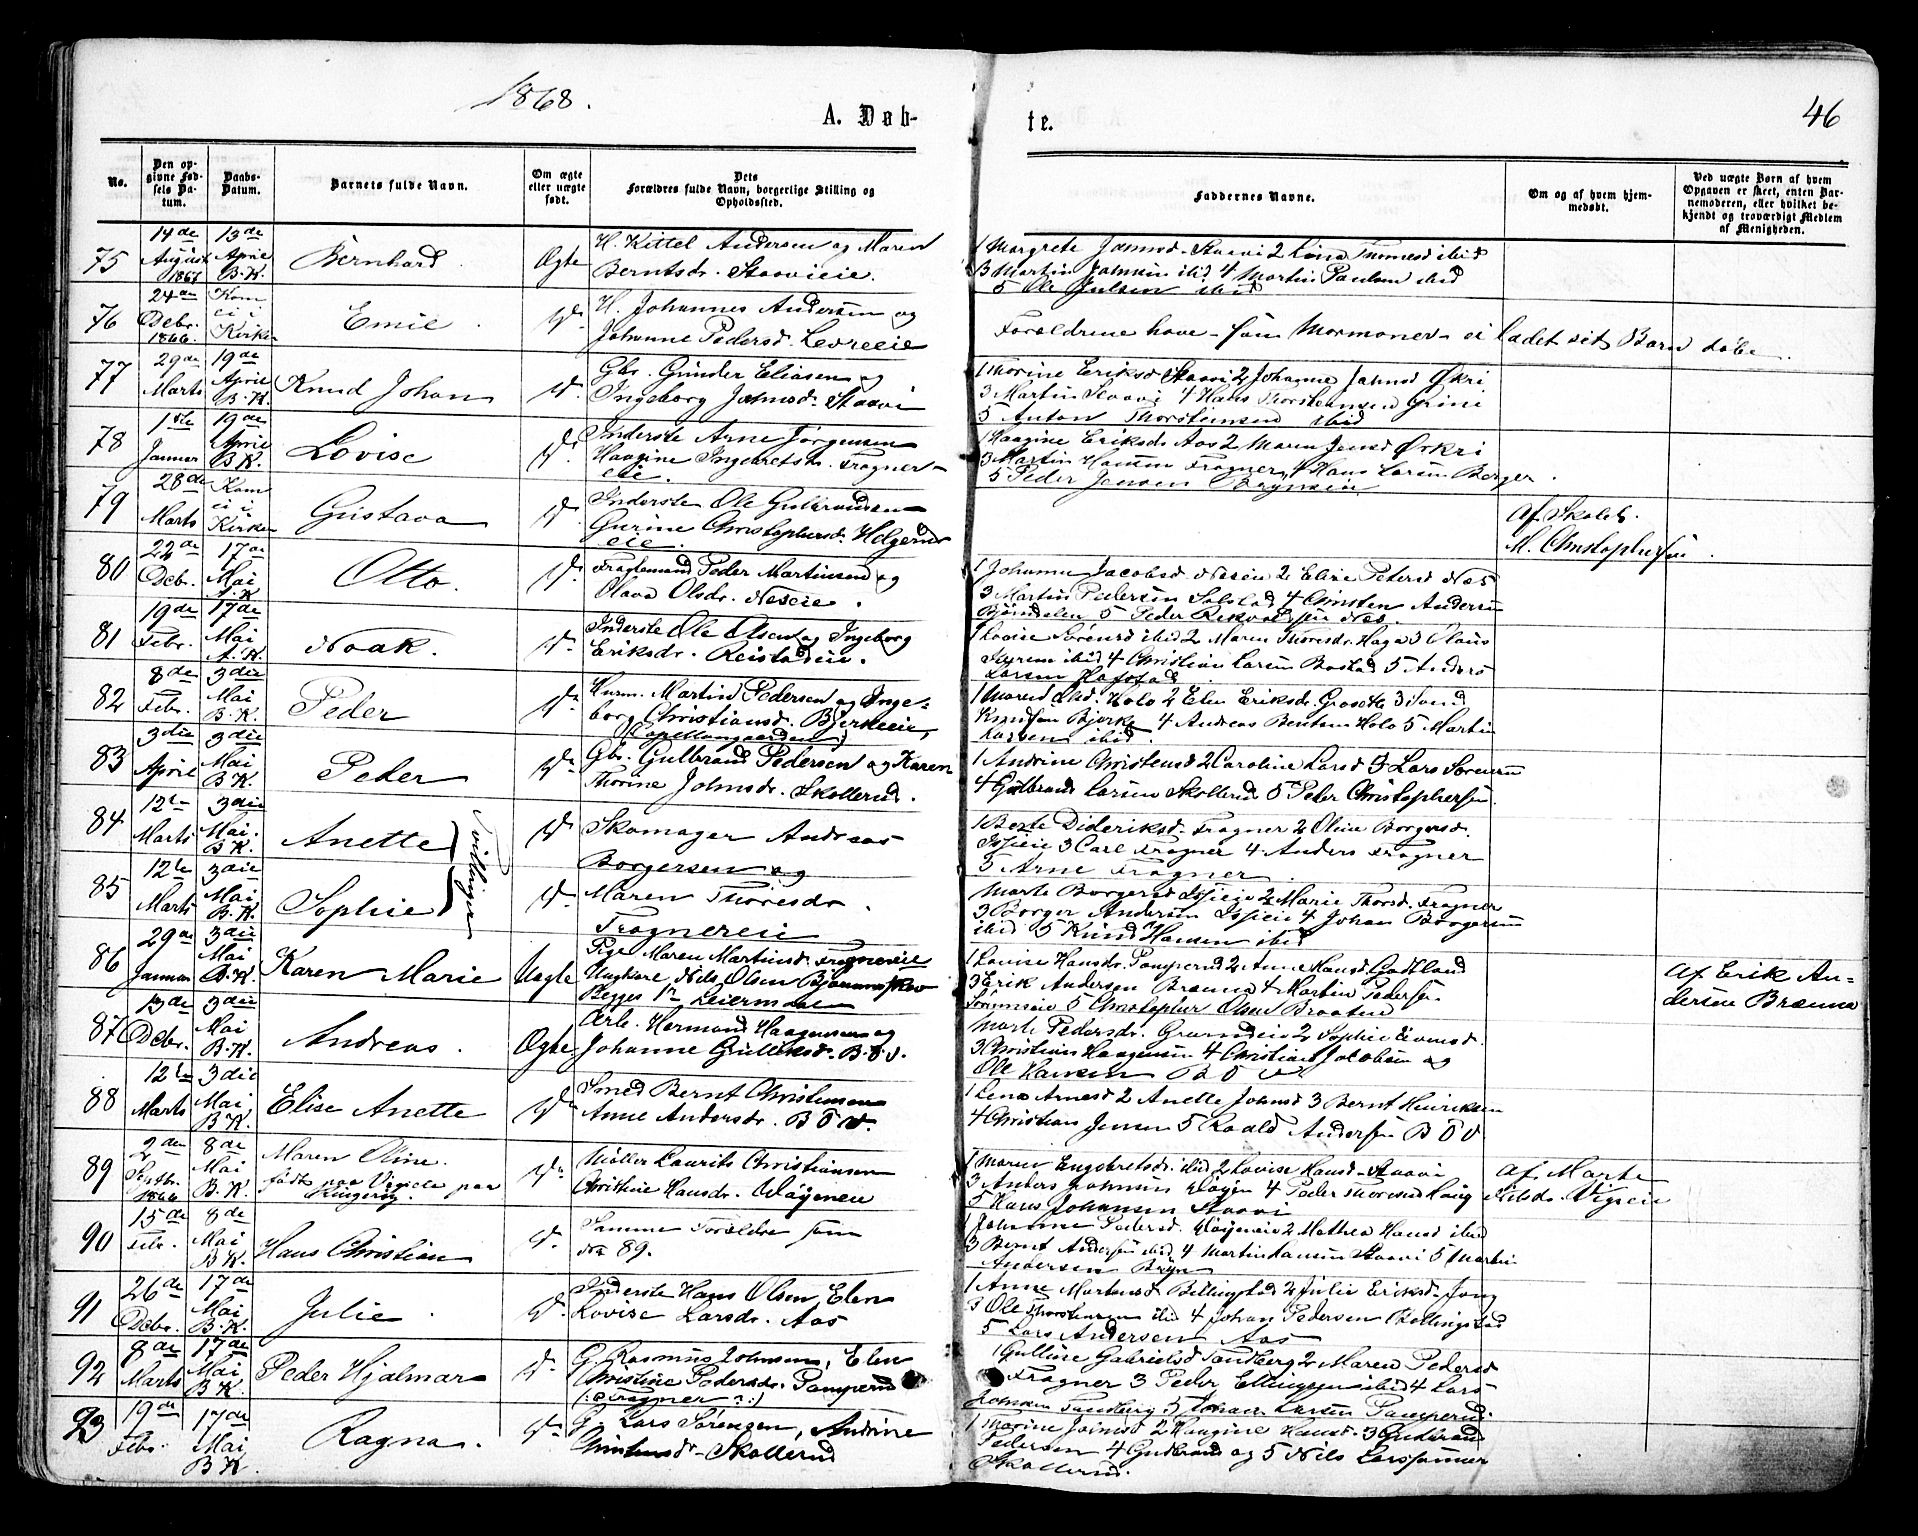 1868.
A. Døb-
te.
46
No.
Den op-
givne Fød-
sels Da-
tum.
Daabs-
Datum.
Barnets fulde Navn.
Om ægte
eller uægte
født.
Dets
Forældres fulde Navn, borgerlige Stilling og
Opholdssted.
Faddernes Navne.
Om og af hvem hjem-
medøbt.
Ved uægte Børn af hvem
Opgaven er skeet, enten Bar-
nemoderen, eller hvilket be-
kjendt og troværdigt Medlem
af Menigheden.
75
14de
August
1867
13de
April
B.K.
Bernhard.
Ægte
H. Kittel Andersen og Maren
Berntsdr. Staavieie.
1 Margrete 2 Lina ibid
3 Martin ibid 4 Martin Paulsen ibid
5 Ole Julsen ibid
76
24de
Debr.
1866.
Kom
ei i
Kirken
Emil.
Do
H. Johannes Andersen og
Johanne Pedersd. Levreeie
Forældrene have som Mormoner ei ladet sit Barn døbe.
77
29de
Marts
19de
April
B.K.
Knud Johan
Do
Gbr. Gunder Eliasen og
Ingeborg Johnsd. Staavi
1 Thorine Eriksd Staavi 2 Johanne Johnsd Økri
3 Martin Staavi 4 Hans Thorstensen Grini
5 Anton Thorstensen ibid
78
1ste
Januar
19de
April
B.K.
Lovise
Do
Inderste Arne Jørgensen
Haagine Ingebretsdr. Fragner-
eie.
1 Haagine Eriksdr Aas 2 Maren Jensd Økri
3 Martin Hansen Fragner 4 Hans Larsen Berger.
5 Peder Jensen
79
28de
Marts
Kom
ei i
Kirken
Gustava
Do
Inderste Ole Gulbrandsen
Gurine Christophersd. Helgerud
eie.
Af Skolel.
M. Christophersen.
80
22de
Debr.
17de
Mai
A.K.
Otto.
Do
Fragtemand Peder Martinsen og
Olava Olsdr. Neseie.
1 Johanne Jacobsd Neseie 2 Elise Petersd Nes
3 Martin Pedersen Solstad 4 Christen Andersen
5 Peder Nes.
81
19de
Febr.
17de
Mai
A.K.
Noak.
Do
Inderste Ole Olsen og Ingeborg
Eriksdr. Reistadeie.
1 Lovise Sørensd ibid 2 Maren Thoresdr. Haga 3 Olaus
ibid 4 Christian Larsen Bastad 5 Anders
Larsen
82
8de
Febr.
3die
Mai
B.K.
Peder
Do
Husm. Martin Pedersen og Inge-
borg Christiansd. Bjerkeeie,
(Capellangaarden)
1 Maren Holo 2 Elen Eriksdr. 3
Knudsen Bjerke 4 Andreas Berntsen Holo 5 Martin
Larsen ibid.
83
3die
April
3die
Mai
B.K.
Peder
Do
Gbr. Gulbrand Pedersen og Karen
Thorine Johnsdr. Skollerud.
1 Andrine Christensd 2 Caroline Larsd 3 Lars Sørensen
4 Gulbrand Larsen Skollerud 5 Peter Christophersen.
84
12te
Marts
3die
Mai.
B.K.
Anette
Tvillinger
Do
Skomager Andreas
Borgersen og
1 Berte Dideriksd. Fragner 2 Oline Borgersd.
3 Carl Fragner 4. Anders Fragner
5 Arne Fragner.
85
12te
Marts
3die
Mai
B.K.
Sophie
Do
Maren Thoresdr.
Fragnereie
Marte Borgersd 2 Marie Thorsd. Fragner
3 Borger Andersen 4 Johan Borgersen
ibid 5 Knud Hansen ibid
86
29de
Januar
3die
Mai
B.K.
Karen Marie
Uægte
Pige Maren Martinsd. Fragnereie
Ungkarl Nils Olsen Bjørumskov
Begges 1ste Leiermaal
1 Lovise Hansdr. Pamperud 2 Anne Hansd.
3 Erik Andersen Brænna 4 Martin Pedersen.
5 Christopher Olsen Braaten
Af Erik An-
dersen Brænna
87
13de
Debr.
3die
Mai
B.K.
Andreas.
Ægte.
Arb. Herman Haagensen og
Johanne Gulliksd. B.ö.v.
Marte Pedersdr. 2 Sophie
3 Christian Haagensen 4 Christian Jacobsen og
Ole Hansen B ö v
88
12te
Marts
3die
Mai
B.K.
Elise Anette
Do
Smed Bernt Christensen
Anne Andersdr. B ö v.
1 Lena Arnesd 2 Anette Johnsd 3 Bernt Henriksen
4 Christian Jensen 5 Roald Andersen B ö v
89
2den
Septbr.
1866
8de
Mai
B.K.
Maren Oline.
født paa paa
Ringerig
Do
Møller Laurits Christiansen
Christine Hansdr. Vøyeneie
1 Maren Engebretsdr. ibid 2 Lovise Hansd. Staavi
3 Anders Johnsen Vøyen 4 Peder Thoresen Haug
5 Hans Johansen Staavi
Af Marte
Nilsdr.
90
15de
Febr.
8de
Mai
B.K.
Hans Christian
Do
Samme Forældre som
No 89.
1 Johanne Pedersd. Vøyeneie 2 Mathea Hansd ibid
3 Bernt Andersen ibid 4 Martin Hansen Staavi 5 Martin
Andersen Bryn
91
26de
Debr.
17de
Mai
B.K.
Julie.
Do
Inderste Hans Olsen Elen
Lovise Larsdr. Aas
1 Anne Martinsd Billingstad 2 Julie Eriksd. Jong
3 Ole Thorstensen ibid 4 Johan Pedersen Billingstad
5 Lars Andersen Aas
92
8de
Marts
17de
Mai
B.K.
Peder Hjalmar
Do
G. Rasmus Johnsen, Elen
Christine Pedersdr. Pamperud
(: Fragner :)
1 Gulline Gabrielsd Sandberg 2 Maren Pedersd
Fragner 3 Peder Ellingsen ibid 4 Lars
Johnsen Sandberg 5 Johan Larsen Pamperud.
93
19de
Febr.
17de
Mai
B.K.
Ragna.
Do
G. Lars Sørensen, Andrine
Christensdr. Skollerud
1 Thorine Johnsd 2 Haagine Hansd. 3 Gulbrand
Pedersen 4 Gudbrand og 5 Nils Larssønner
Skollerud.